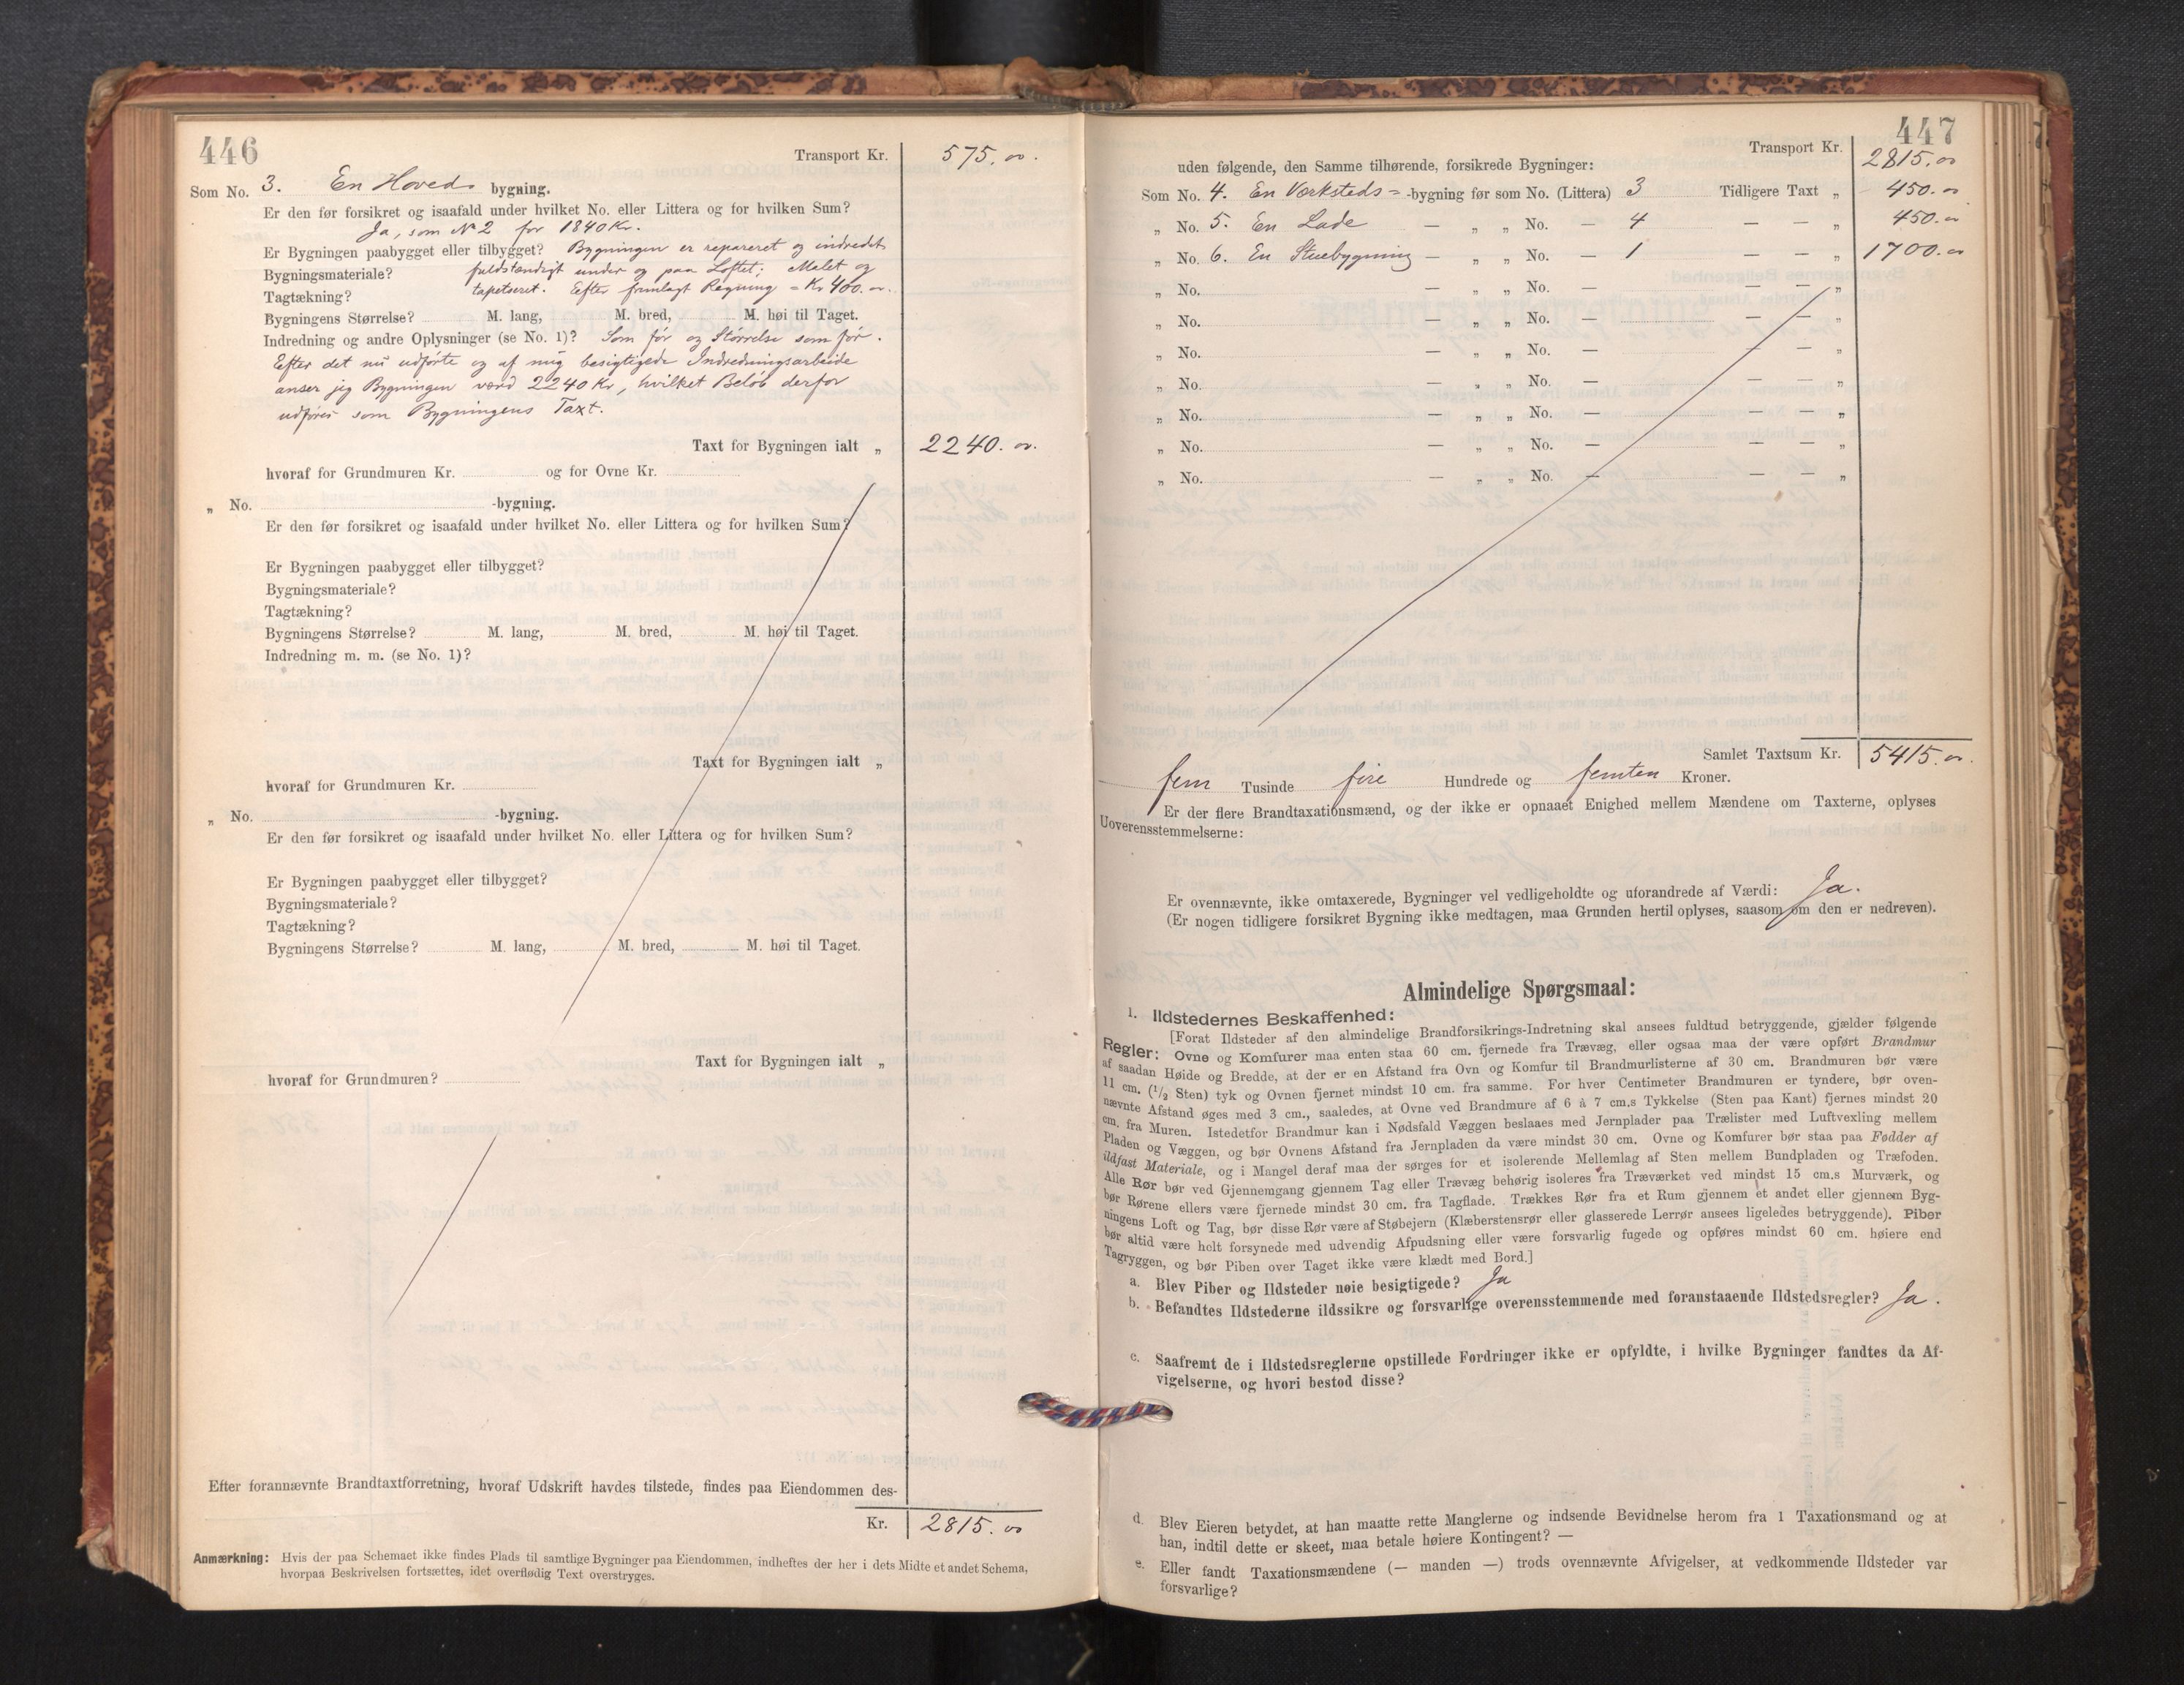 446
Transport Kr. 575.00.
Som No. 3. En Hoveds bygning.
Er den før forsikret og isaafald under hvilket No. eller Littera og for hvilken Sum?
Ja, som No 2 for 1840 Kr.
Er Bygningen paabygget eller tilbygget? Bygningen er repareret og indredet
Bygningsmateriale? fuldstændigt under og paa Loftet; Malet og
Tagtækning? tapetseret. Efter fremlagt Regning = Kr 400.00.
Bygningens Størrelse? M. lang, M. bred, M. høi til Taget.
Indredning og andre Oplysninger (se No. 1)? Som før og Størrelse som før.
Efter det nu udførte og af mig besigtigede Indredningsarbeide
anser jeg Bygningen værd 2240 Kr, hvilket Beløb derfor
udføres som Bygningens Taxt.
Taxt for Bygningen ialt „ 2240.00.
hvoraf for Grundmuren Kr. og for Ovne Kr.
„ No. -bygning.
Er den før forsikret og isaafald under hvilket No. eller Littera og for hvilken Sum?
Er Bygningen paabygget eller tilbygget?
Bygningsmateriale?
Tagtækning?
Bygningens Størrelse? M. lang, M. bred, M. høi til Taget.
Indredning m. m. (se No. 1)?
Taxt for Bygningen ialt „
hvoraf for Grundmuren Kr.
„ No. -bygning.
Er den før forsikret og isaafald under hvilket No. eller Littera og for hvilken Sum?
Er Bygningen paabygget eller tilbygget?
Bygningsmateriale?
Tagtækning?
Bygningens Størrelse? M. lang, M. bred, M. høi til Taget.
Taxt for Bygningen ialt „
hvoraf for Grundmuren?
Efter forannævnte Brandtaxtforretning, hvoraf Udskrift havdes tilstede, findes paa Eiendommen des-
Kr. 2815.00
Anmærkning: Hvis der paa Schemaet ikke findes Plads til samtlige Bygninger paa Eiendommen, indheftes der her i dets Midte et andet Schema,
hvorpaa Beskrivelsen fortsættes, idet overflødig Text overstryges.
447
Transport Kr. 2815.00
uden følgende, den Samme tilhørende, forsikrede Bygninger:
Som No. 4. En Værksteds= -bygning før som No. (Littera) 3 Tidligere Taxt „ 450.00
„ No. 5. En Lade — „ „ No. — 4 — — „ 450.00
„ No. 6. En Stuebygning — „ „ No. — 1 — — „ 1700.00
„ No. — „ „ No. — — — „
„ No. — „ „ No. — — — „
„ No. — „ „ No. — — — „
„ No. — „ „ No. — — — „
„ No. — „ „ No. — — — „
„ No. — „ „ No. — — — „
„ No. — „ „ No. — — — „
Samlet Taxtsum Kr. 5415.00.
fem Tusinde fire Hundrede og femten Kroner.
Er der flere Brandtaxationsmænd, og der ikke er opnaaet Enighed mellem Mændene om Taxterne, oplyses
Uoverensstemmelserne:
Er ovennævnte, ikke omtaxerede, Bygninger vel vedligeholdte og uforandrede af Værdi: Ja.
(Er nogen tidligere forsikret Bygning ikke medtagen, maa Grunden hertil oplyses, saasom om den er nedreven).
Almindelige Spørgsmaal:
1. Ildstedernes Beskaffenhed:
[Forat Ildsteder af den almindelige Brandforsikrings-Indretning skal ansees fuldtud betryggende, gjælder følgende
Regler: Ovne og Komfurer maa enten staa 60 cm. fjernede fra Trævæg, eller ogsaa maa der være opført Brandmur
af saadan Høide og Bredde, at der er en Afstand fra Ovn og Komfur til Brandmurlisterne af 30 cm. Brandmuren bør være
11 cm. (1/2 Sten) tyk og Ovnen fjernet mindst 10 cm. fra samme. For hver Centimeter Brandmuren er tyndere, bør oven-
nævnte Afstand øges med 3 cm., saaledes, at Ovne ved Brandmure af 6 à 7 cm.s Tykkelse (Sten paa Kant) fjernes mindst 20
cm. fra Muren. Istedetfor Brandmur kan i Nødsfald Væggen beslaaes med Jernplader paa Trælister med Luftvexling mellem
Pladen og Væggen, og bør Ovnens Afstand fra Jernpladen da være mindst 30 cm. Ovne og Komfurer bør staa paa Fødder af
ildfast Materiale, og i Mangel deraf maa der sørges for et isolerende Mellemlag af Sten mellem Bundpladen og Træfoden.
Alle Rør bør ved Gjennemgang gjennem Tag eller Trævæg behørig isoleres fra Træværket ved mindst 15 cm.s Murværk, og
bør Rørene ellers være fjernede mindst 30 cm. fra Tagflade. Trækkes Rør fra et Rum gjennem et andet eller gjennem Byg-
ningens Loft og Tag, bør disse Rør være af Støbejern (Klæberstensrør eller glasserede Lerrør ansees ligeledes betryggende). Piber
bør altid være helt forsynede med udvendig Afpudsning eller være forsvarlig fugede og opføres mindst 60 cm. høiere end
Tagryggen, og bør Piben over Taget ikke være klædt med Bord.]
a. Blev Piber og Ildsteder nøie besigtigede? Ja
b. Befandtes Ildstederne ildssikre og forsvarlige overensstemmende med foranstaaende Ildstedsregler? Ja.
c. Saafremt de i Ildstedsreglerne opstillede Fordringer ikke er opfyldte, i hvilke Bygninger fandtes da Af-
vigelserne, og hvori bestod disse?
d. Blev Eieren betydet, at han maatte rette Manglerne og indsende Bevidnelse herom fra 1 Taxationsmand og at
han, indtil dette er skeet, maa betale høiere Kontingent? —
e. Eller fandt Taxationsmændene (— manden —) trods ovennævnte Afvigelser, at vedkommende Ildsteder var
forsvarlige?